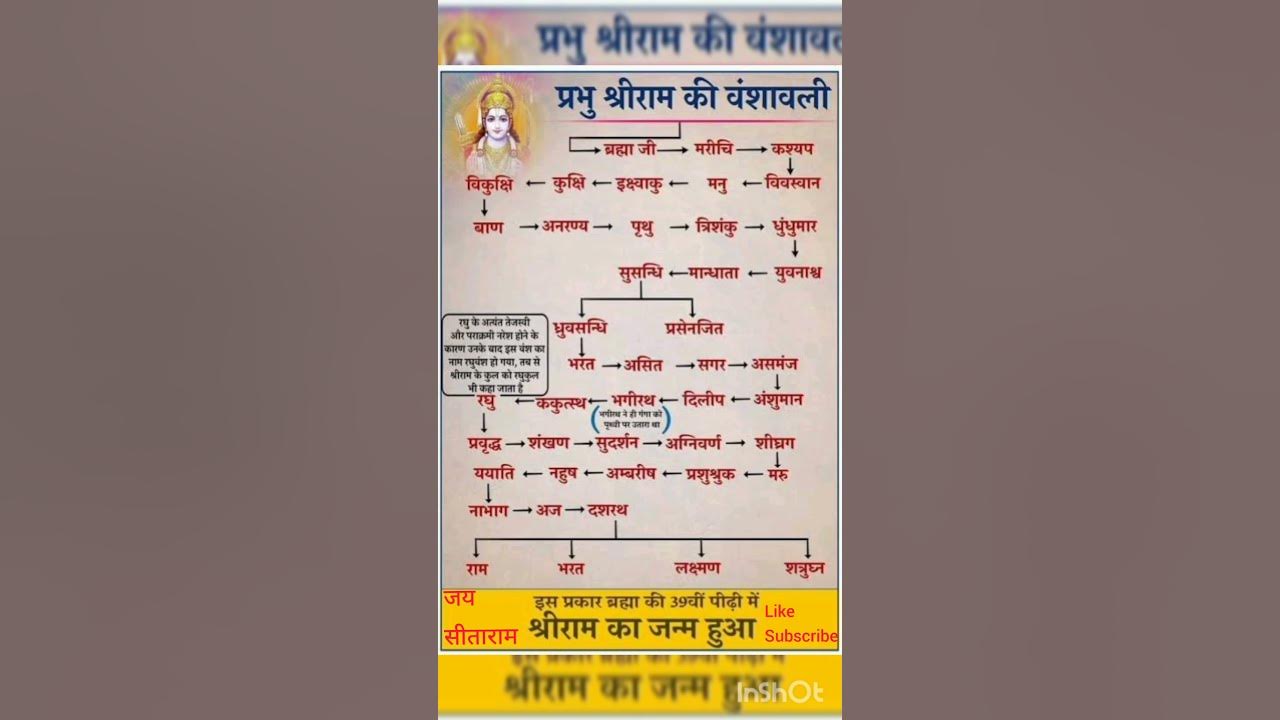 प्रभु श्रीराम की वंशावल
प्रभु श्रीराम की वंशावली
ब्रह्मा जी → मरीचि → कश्यप
विकुक्षि ← कुक्षि ← इक्ष्वाकु ← मनु ← विवस्वान
बाण → अनरण्य → पृथु → त्रिशंकु → धुंधुमार
सुसन्धि ← मान्धाता ← युवनाश्व
रघु के अत्यंत तेजस्वी
और पराक्रमी नरेश होने के
कारण उनके बाद इस वंश का
नाम रघुवंश हो गया, तब से
श्रीराम के कुल को रघुकुल
भी कहा जाता है
ध्रुवसन्धि प्रसेनजित
भरत → असित → सगर → असमंज
रघु ← ककुत्स्थ ← भगीरथ ← दिलीप ← अंशुमान
(भगीरथ ने ही गंगा को
पृथ्वी पर उतारा था)
प्रवृद्ध → शंखण → सुदर्शन → अग्निवर्ण → शीघ्रग
ययाति ← नहुष ← अम्बरीष ← प्रशुश्रुक ← मरु
नाभाग → अज → दशरथ
राम भरत लक्ष्मण शत्रुघ्न
जय
सीताराम
इस प्रकार ब्रह्मा की 39वीं पीढ़ी में
श्रीराम का जन्म हुआ
Like
Subscribe
श्रीराम का जन्म हुआ
InShOt